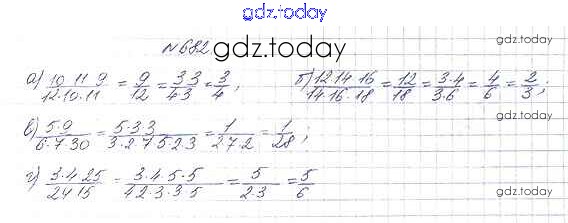 gdz.today
№ 682
gdz.today
gdz.today
а) 10·11·9/12·10·11 = 9/12 = 3·3/4·3 = 3/4 ; б) 12·14·16/14·16·18 = 12/18 = 3·4/3·6 = 4/6 = 2/3 ;
в) 5·9/6·7·30 = 5·3·3/3·2·7·5·2·3 = 1/2·7·2 = 1/28 ;
г) 3·4·25/24·15 = 3·4·5·5/4·2·3·3·5 = 5/2·3 = 5/6
gdz.today
gdz.today